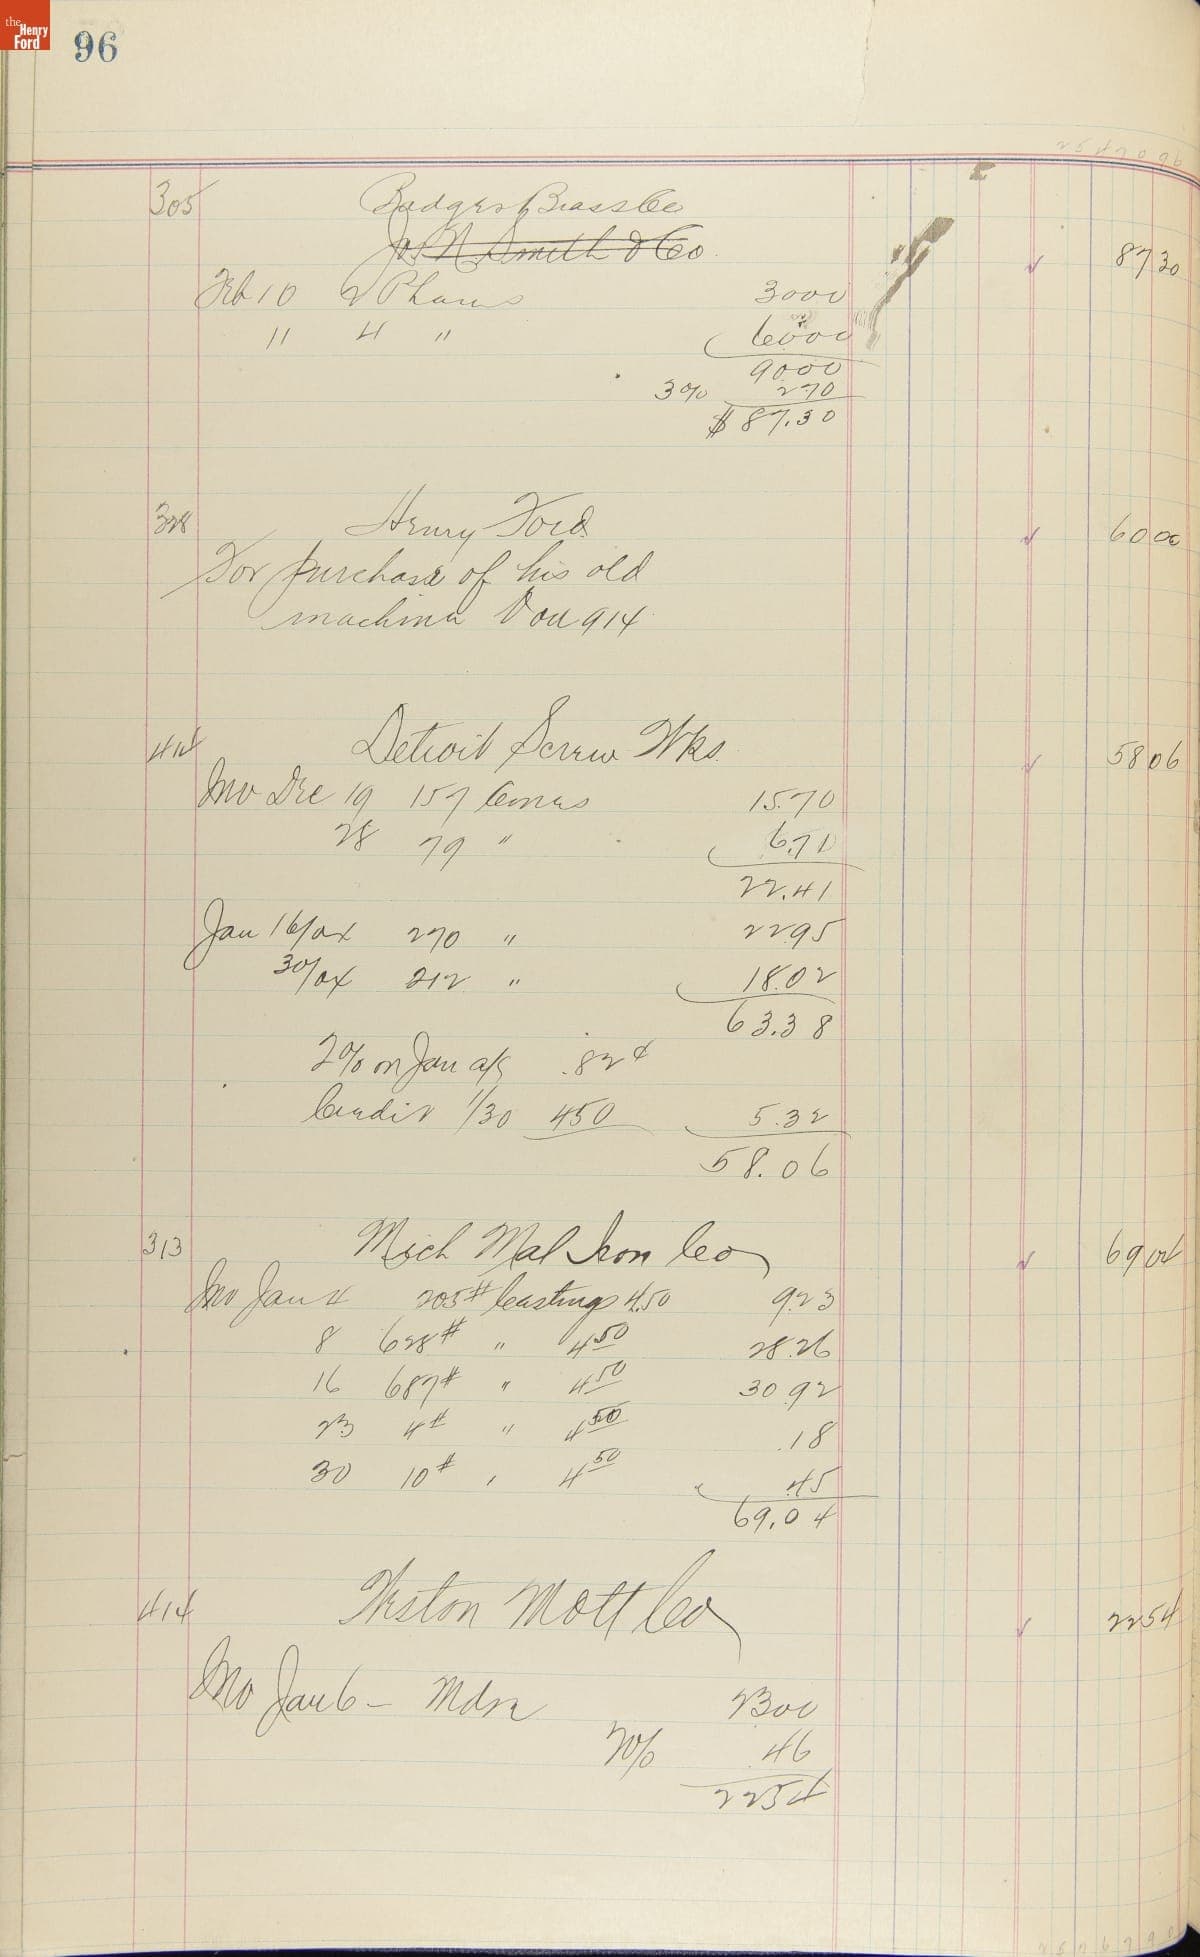 the Henry Ford
96
305 Badger Brass Co
Jos N Smith & Co 8730
Feb 10 2 Phares 3000
11 4 " 6000
9000
3% 270
$87.30
328 Henry Ford 6000
For purchase of his old
machine Vou 914
414 Detroit Screw Wks. 5806
Inv Dec 19 157 Cones 15.70
28 79 " 6.71
22.41
Jan 16/04 270 " 2295
30/04 212 " 18.02
63.38
2% on Jan a/c .82¢
Credit 1/30 450 5.32
58.06
313 Mich Mal Iron Co 6904
Inv Jan 4 205# Castings 4.50 923
8 628# " 4 50 28.26
16 687# " 4 50 30 92
23 4# " 4 50 .18
30 10# " 4 50 .45
69.04
414 Weston Mott Co 2254
Inv Jan 6 - Mdse 2300
2% 46
2254